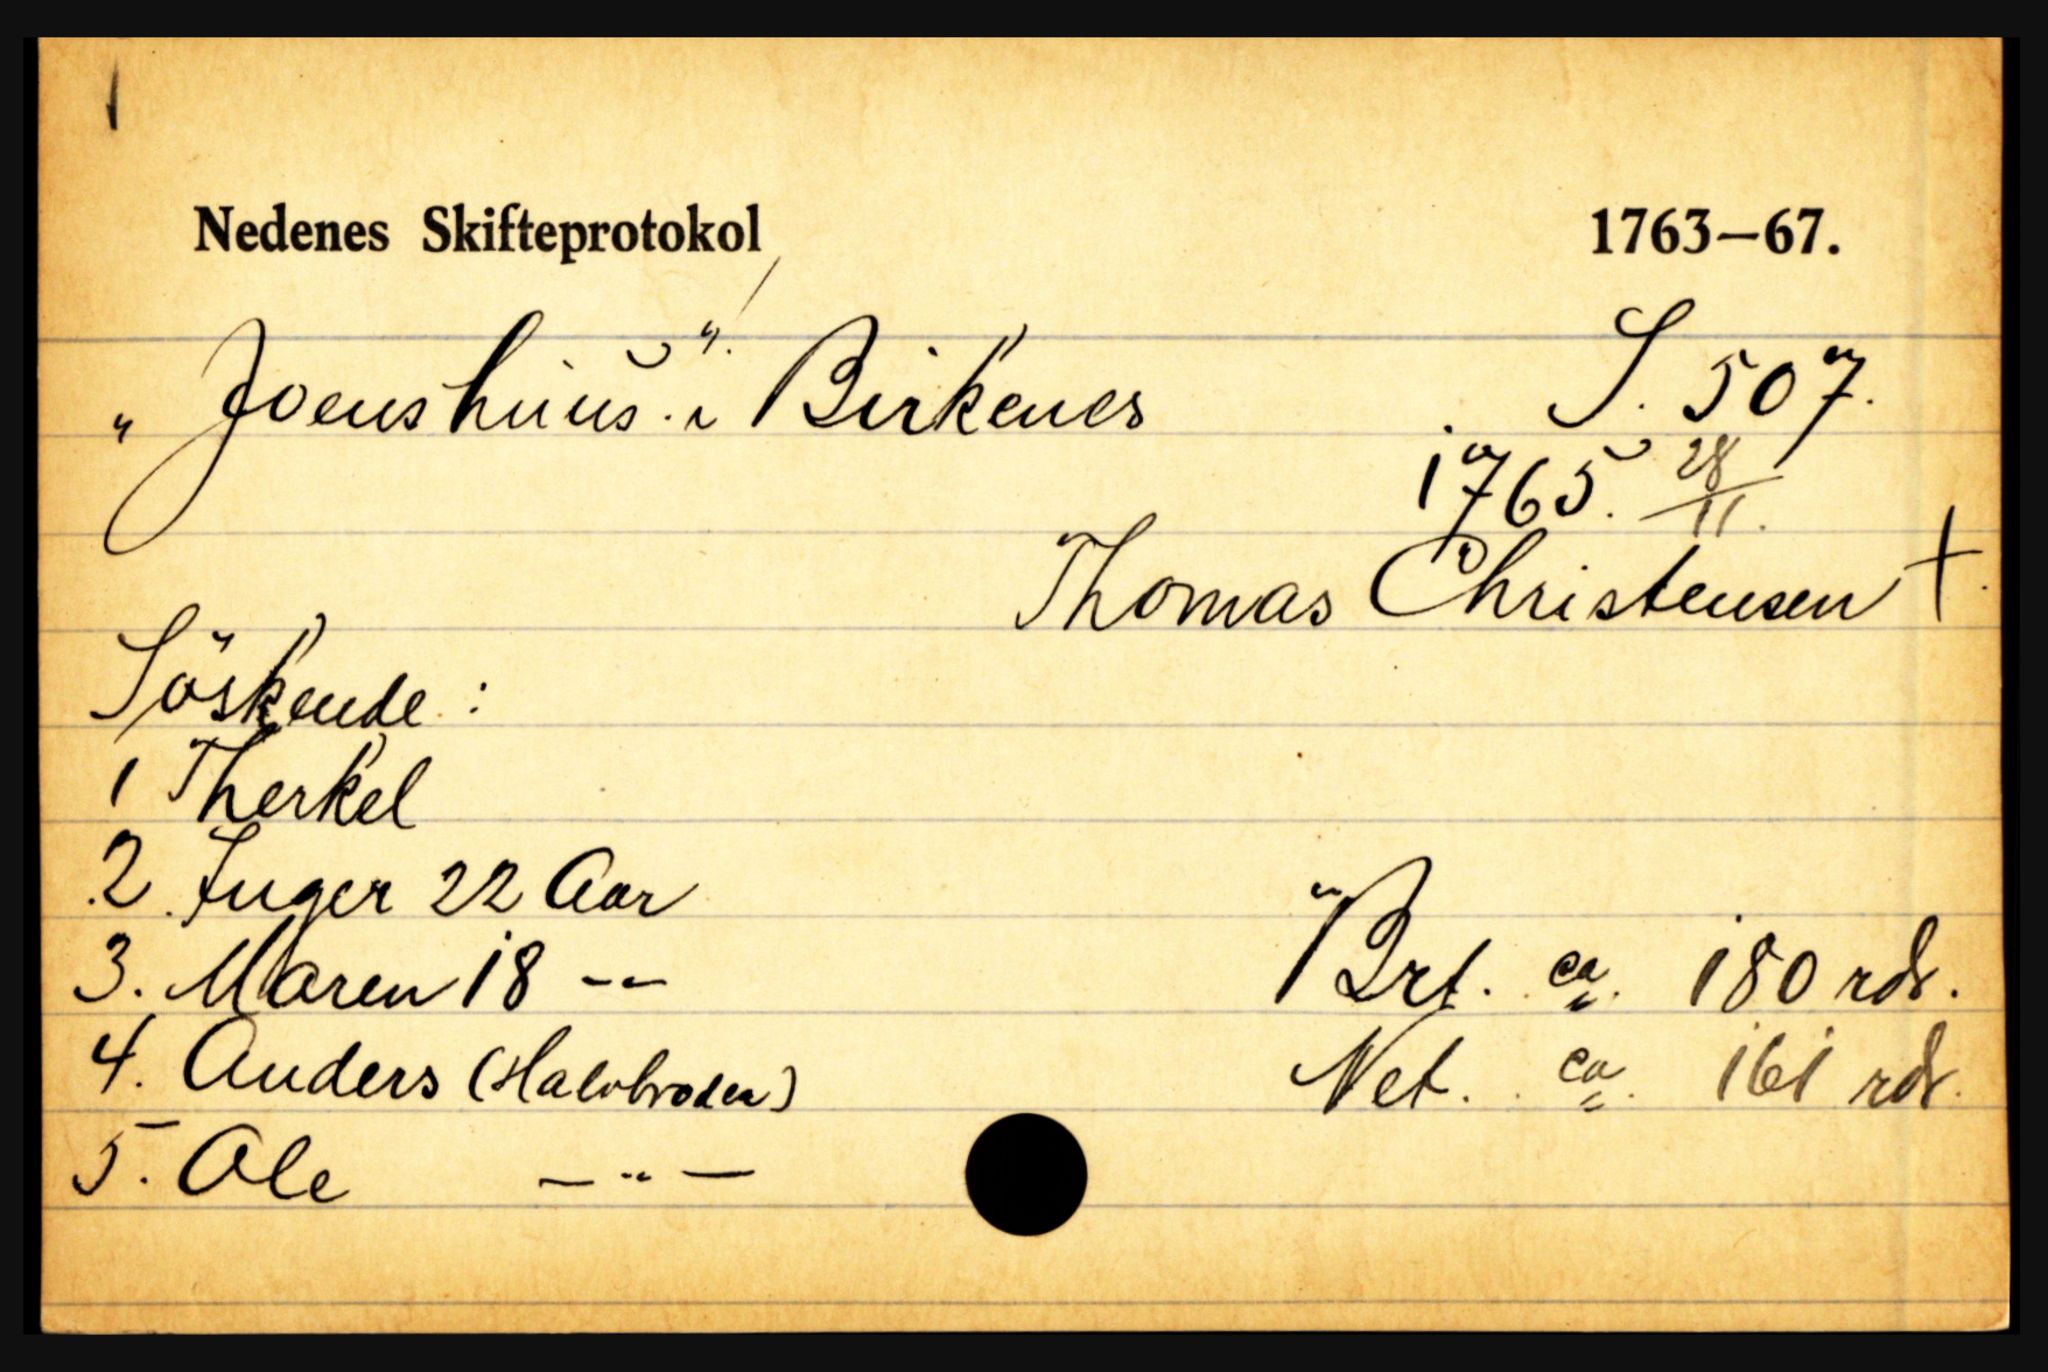 Nedenes Skifteprotokol 1763—67.
„Joenshuus". i Birkenes S. 507.
1765. 28/11.
Thomas Christensen †.
Söskende :
1 Therkel
2. Inger 22 Aar
3. Maren 18 --
4. Anders (Halvbroder)
5. Ole — " —
Brt. ca. 180 rdr.
Net. ca. 161 rdr.